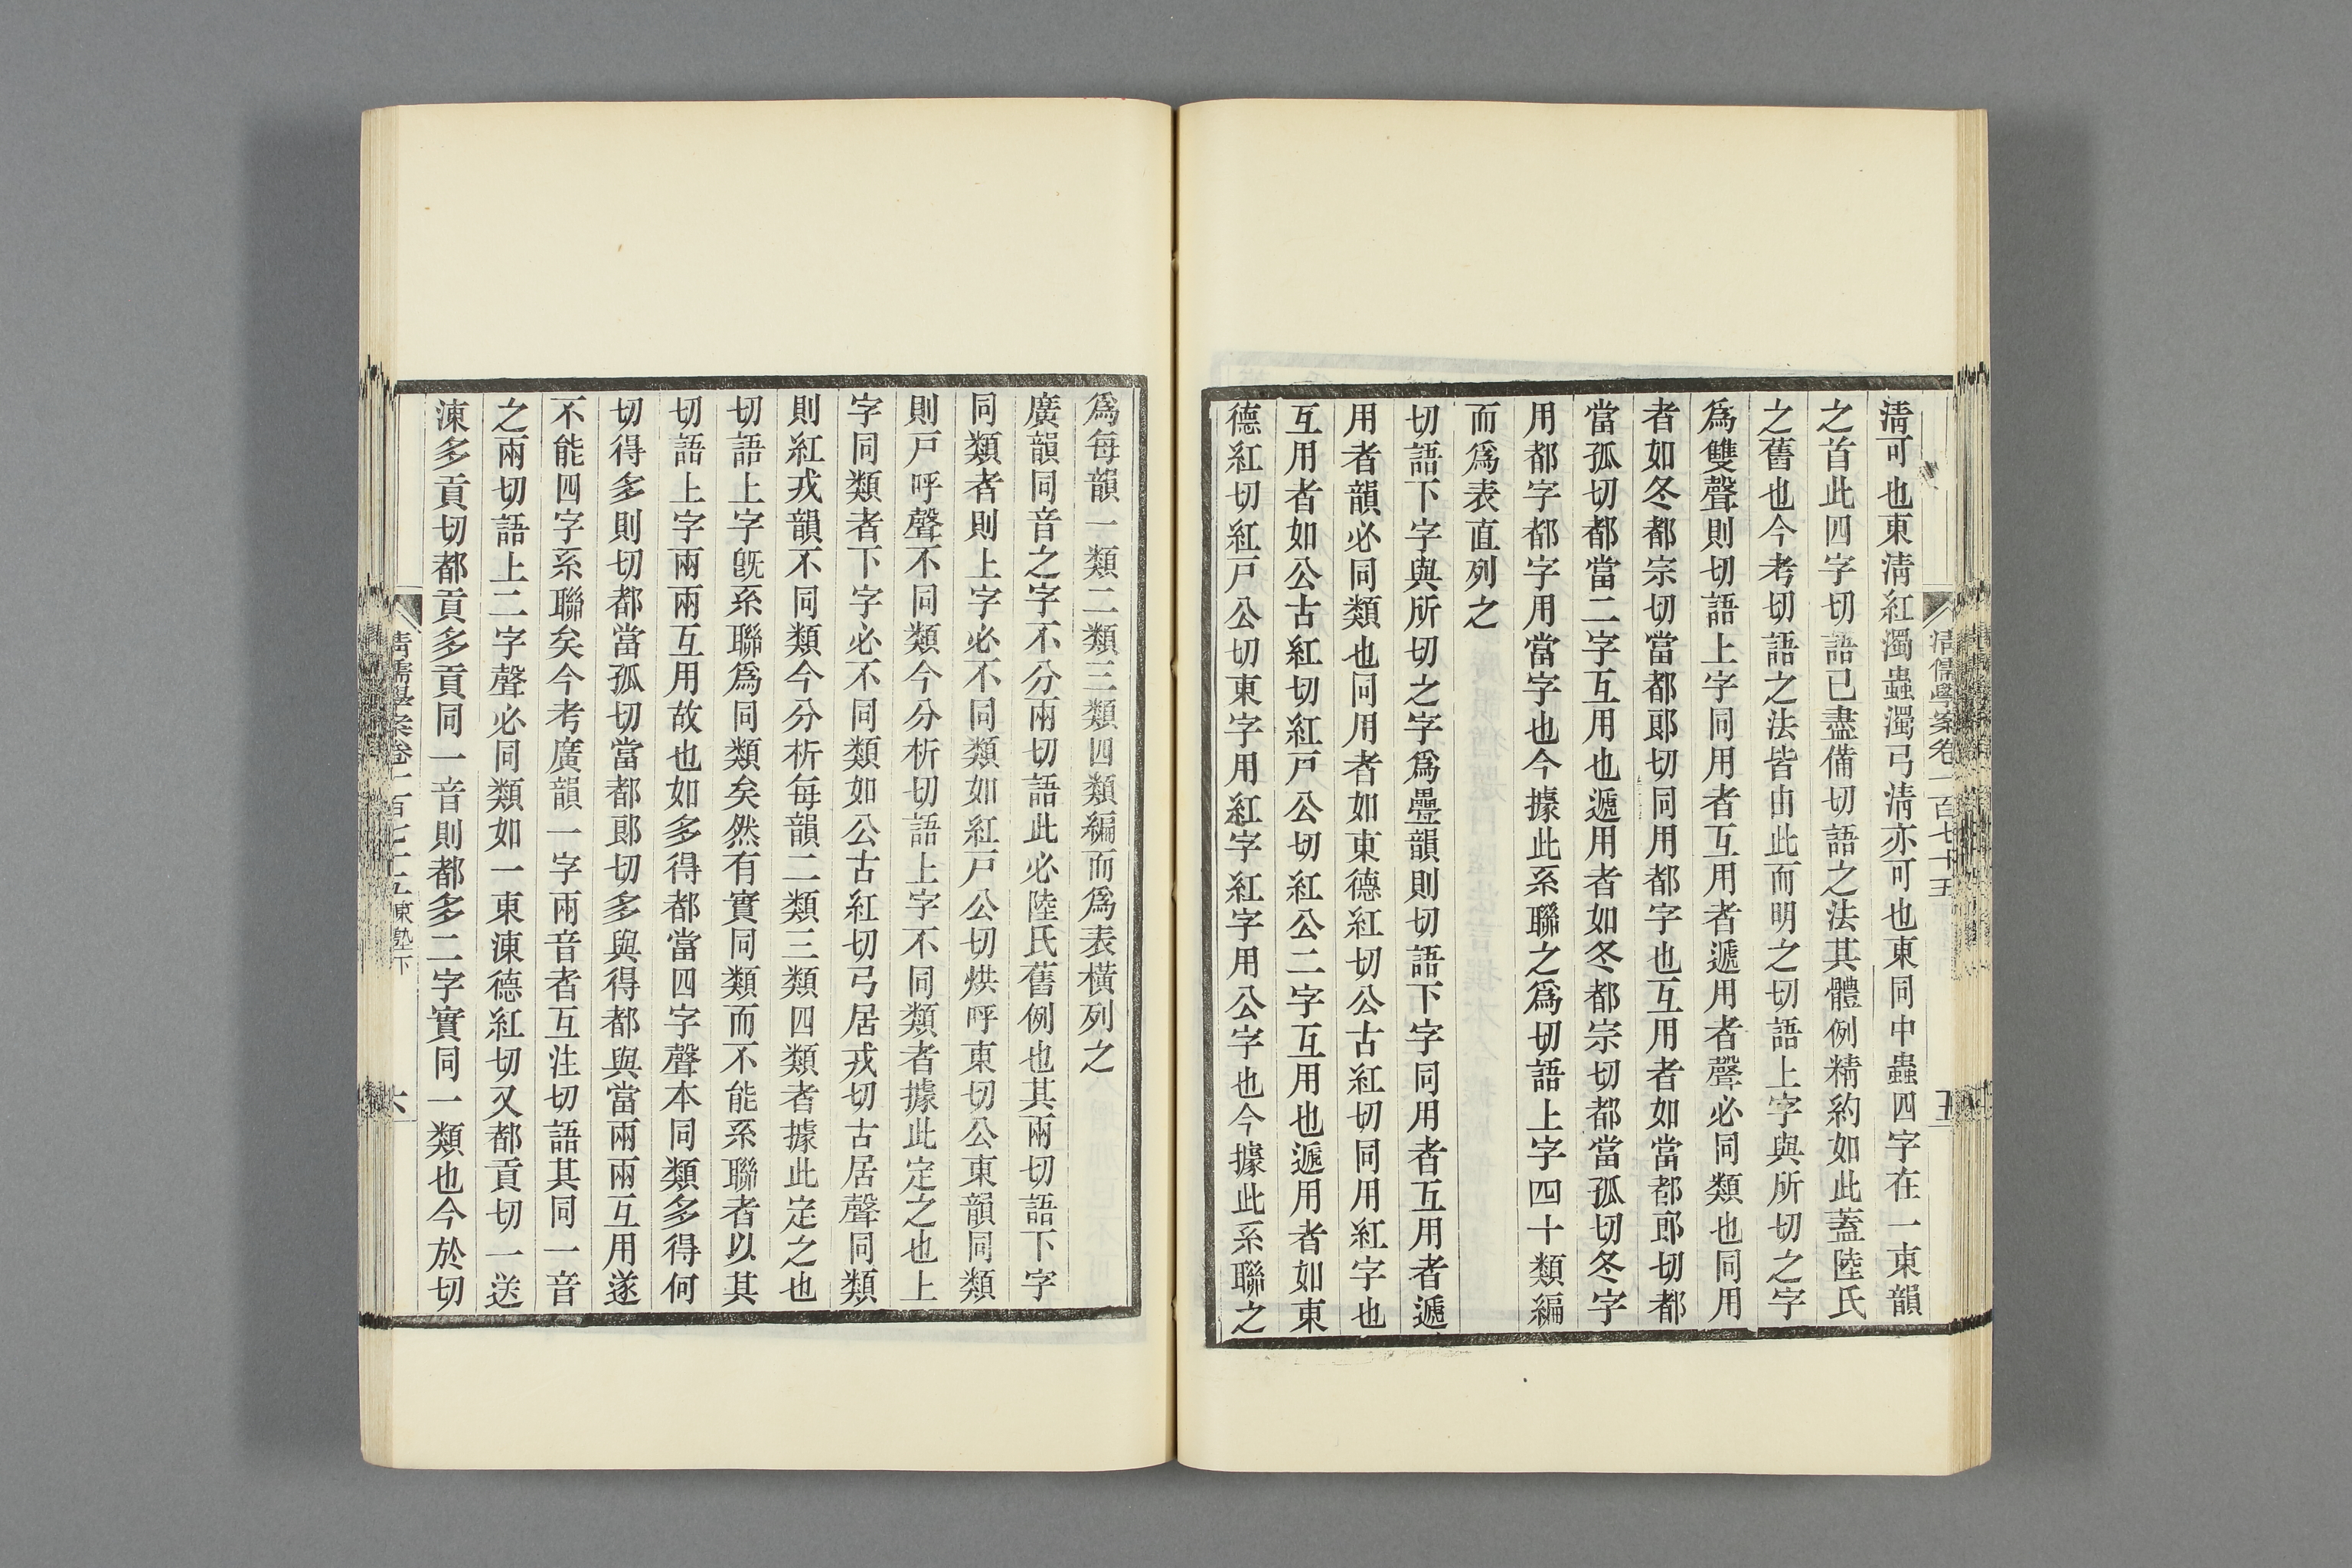 清儒學案卷一百七十五
五
清可也東清紅濁蟲濁弓清亦可也東同中蟲四字在一東韻
之首此四字切語已盡備切語之法其體例精約如此蓋陸氏
之舊也今考切語之法皆由此而明之切語上字與所切之字
爲雙聲則切語上字同用者互用者遞用者聲必同類也同用
者如冬都宗切當都郞切同用都字也互用者如當都郞切都
當孤切都當二字互用也遞用者如冬都宗切都當孤切冬字
用都字都字用當字也今據此系聯之爲切語上字四十類編
而爲表直列之
切語下字與所切之字爲疊韻則切語下字同用者互用者遞
用者韻必同類也同用者如東德紅切公古紅切同用紅字也
互用者如公古紅切紅戸公切紅公二字互用也遞用者如東
德紅切紅戸公切東字用紅字紅字用公字也今據此系聯之
爲每韻一類二類三類四類編而爲表橫列之
廣韻同音之字不分兩切語此必陸氏舊例也其兩切語下字
同類者則上字必不同類如紅戸公切烘呼東切公東韻同類
則戸呼聲不同類今分析切語上字不同類者據此定之也上
字同類者下字必不同類如公古紅切弓居戎切古居聲同類
則紅戎韻不同類今分析每韻二類三類四類者據此定之也
切語上字旣系聯爲同類矣然有實同類而不能系聯者以其
切語上字兩兩互用故也如多得都當四字聲本同類多得何
切得多則切都當孤切當都郞切多與得都與當兩兩互用遂
不能四字系聯矣今考廣韻一字兩音者互注切語其同一音
之兩切語上二字聲必同類如一東涷德紅切又都貢切一送
涷多貢切都貢多貢同一音則都多二字實同一類也今於切
清儒學案卷一百七十五東塾下
六